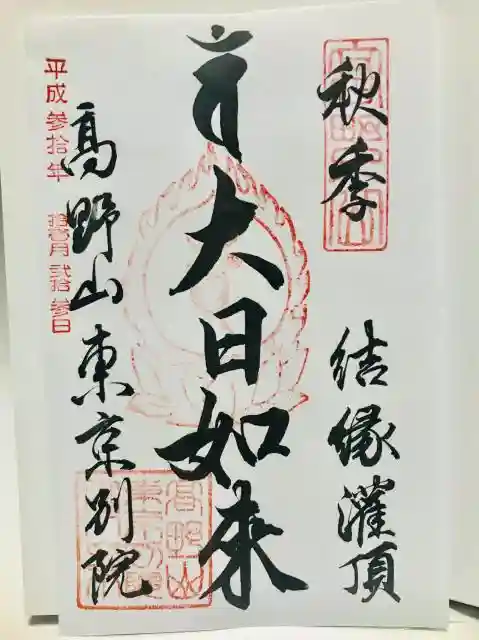 秋季
結縁灌頂
大日如来
高野山東京別院
平成参拾年
拾壱月弐拾参日